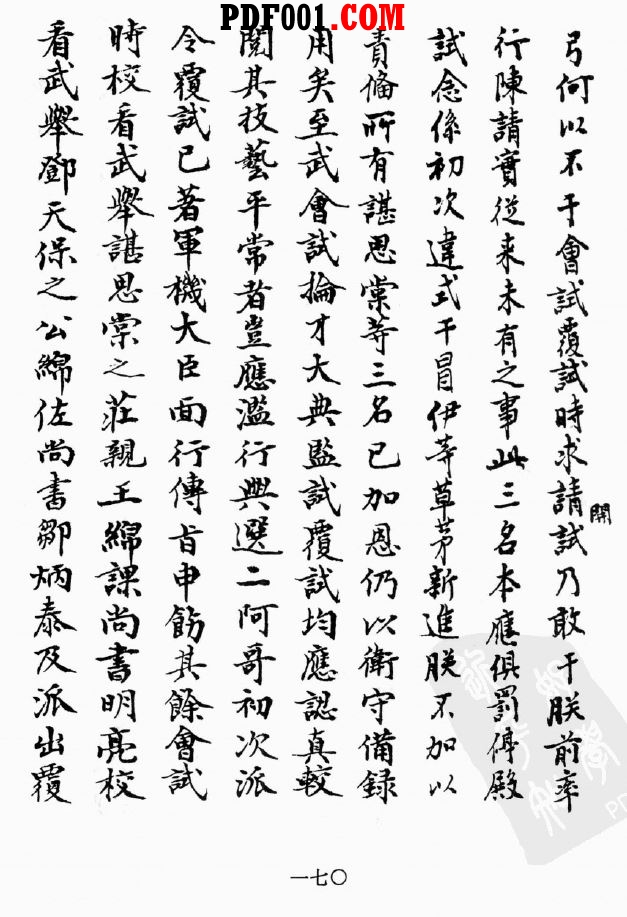 PDF001.COM
弓何以不于會試覆試時求請開試乃敢于朕前率
行陳請實從来未有之事此三名本應俱罰停殿
試念係初次違式干冒伊等草茅新進朕不加以
責備所有諶思棠等三名已加恩仍以衛守備録
用矣至武會試掄才大典監試覆試均應認真較
閱其技藝平常者豈應濫行與選二阿哥初次派
令覆試已著軍機大臣面行傳旨申飭其餘會試
時校看武舉諶思棠之莊親王綿課尚書明亮校
看武舉鄧天保之公綿佐尚書鄒炳泰及派出覆
一七〇